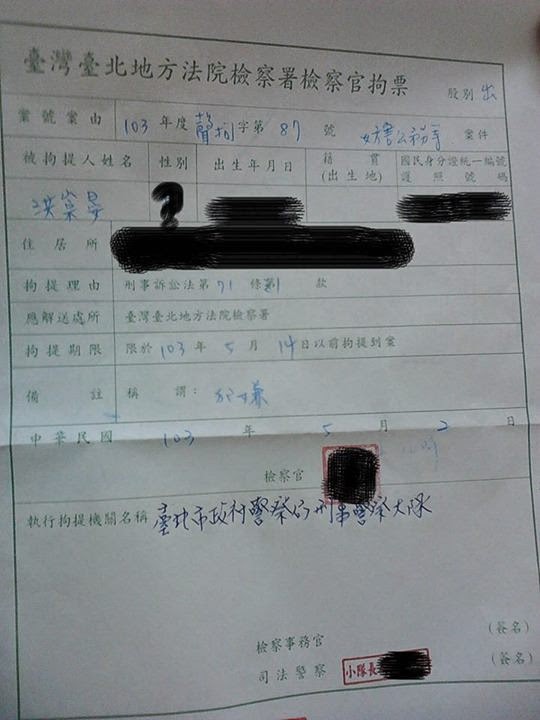 臺灣臺北地方法院檢察署檢察官拘票
股別 出
案號案由 103年度聲拘字第 87 號 妨害公務等 案件
被拘提人姓名 性別 出生年月日 籍貫(出生地) 國民身分證統一編號 護照號碼
洪崇晏
住居所
拘提理由 刑事訴訟法第 71 條第1 款
應解送處所 臺灣臺北地方法院檢察署
拘提期限 限於 103 年 5 月 14 日以前拘提到案
備註 稱謂:
中華民國 103 年 5 月 2 日
檢察官
執行拘提機關名稱 臺北市政府警察局刑事警察大隊
檢察事務官 (簽名)
司法警察 小隊長 (簽名)